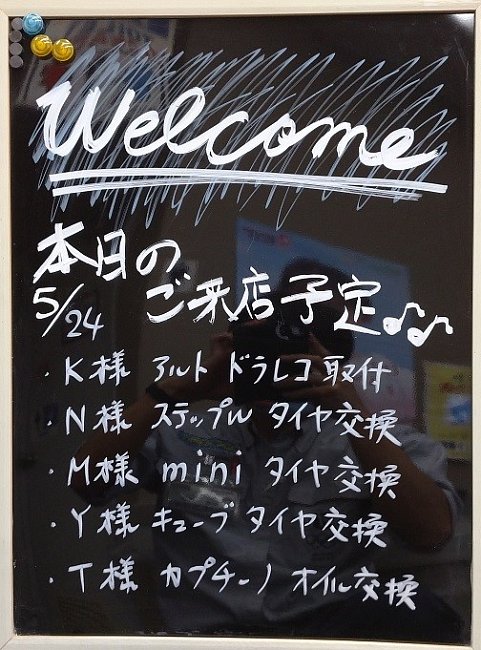 Welcome
本日の
5/24 ご来店予定♪♪
・K様 アルト ドラレコ取付
・N様 ステップル タイヤ交換
・M様 mini タイヤ交換
・Y様 キューブ タイヤ交換
・T様 カプチーノ オイル交換